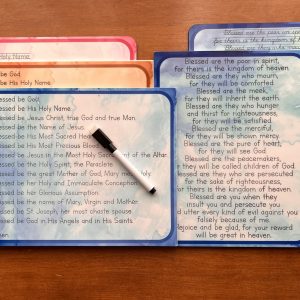 Holy Name.
be God.
be His Holy Name.
Blessed be God.
Blessed be His Holy Name.
Blessed be Jesus Christ, true God and true Man.
Blessed be the Name of Jesus.
Blessed be His Most Sacred Heart.
Blessed be His Most Precious Blood.
Blessed be Jesus in the Most Holy Sacrament of the Altar.
Blessed be the Holy Spirit, the Paraclete.
Blessed be the great Mother of God, Mary most Holy.
Blessed be her Holy and Immaculate Conception.
Blessed be her Glorious Assumption.
Blessed be the name of Mary, Virgin and Mother.
Blessed be St. Joseph, her most chaste spouse.
Blessed be God in His Angels and in His Saints.
Blessed are the poor in spirit,
for theirs is the kingdom of heaven.
Blessed are they who
Blessed are the poor in spirit,
for theirs is the kingdom of heaven.
Blessed are they who mourn,
for they will be comforted.
Blessed are the meek,
for they will inherit the earth.
Blessed are they who hunger
and thirst for righteousness,
for they will be satisfied.
Blessed are the merciful,
for they will be shown mercy.
Blessed are the pure of heart,
for they will see God.
Blessed are the peacemakers,
for they will be called children of God.
Blessed are they who are persecuted
for the sake of righteousness,
for theirs is the kingdom of heaven.
Blessed are you when they
insult you and persecute you
and utter every kind of evil against you
falsely because of me.
Rejoice and be glad, for your reward
will be great in heaven.